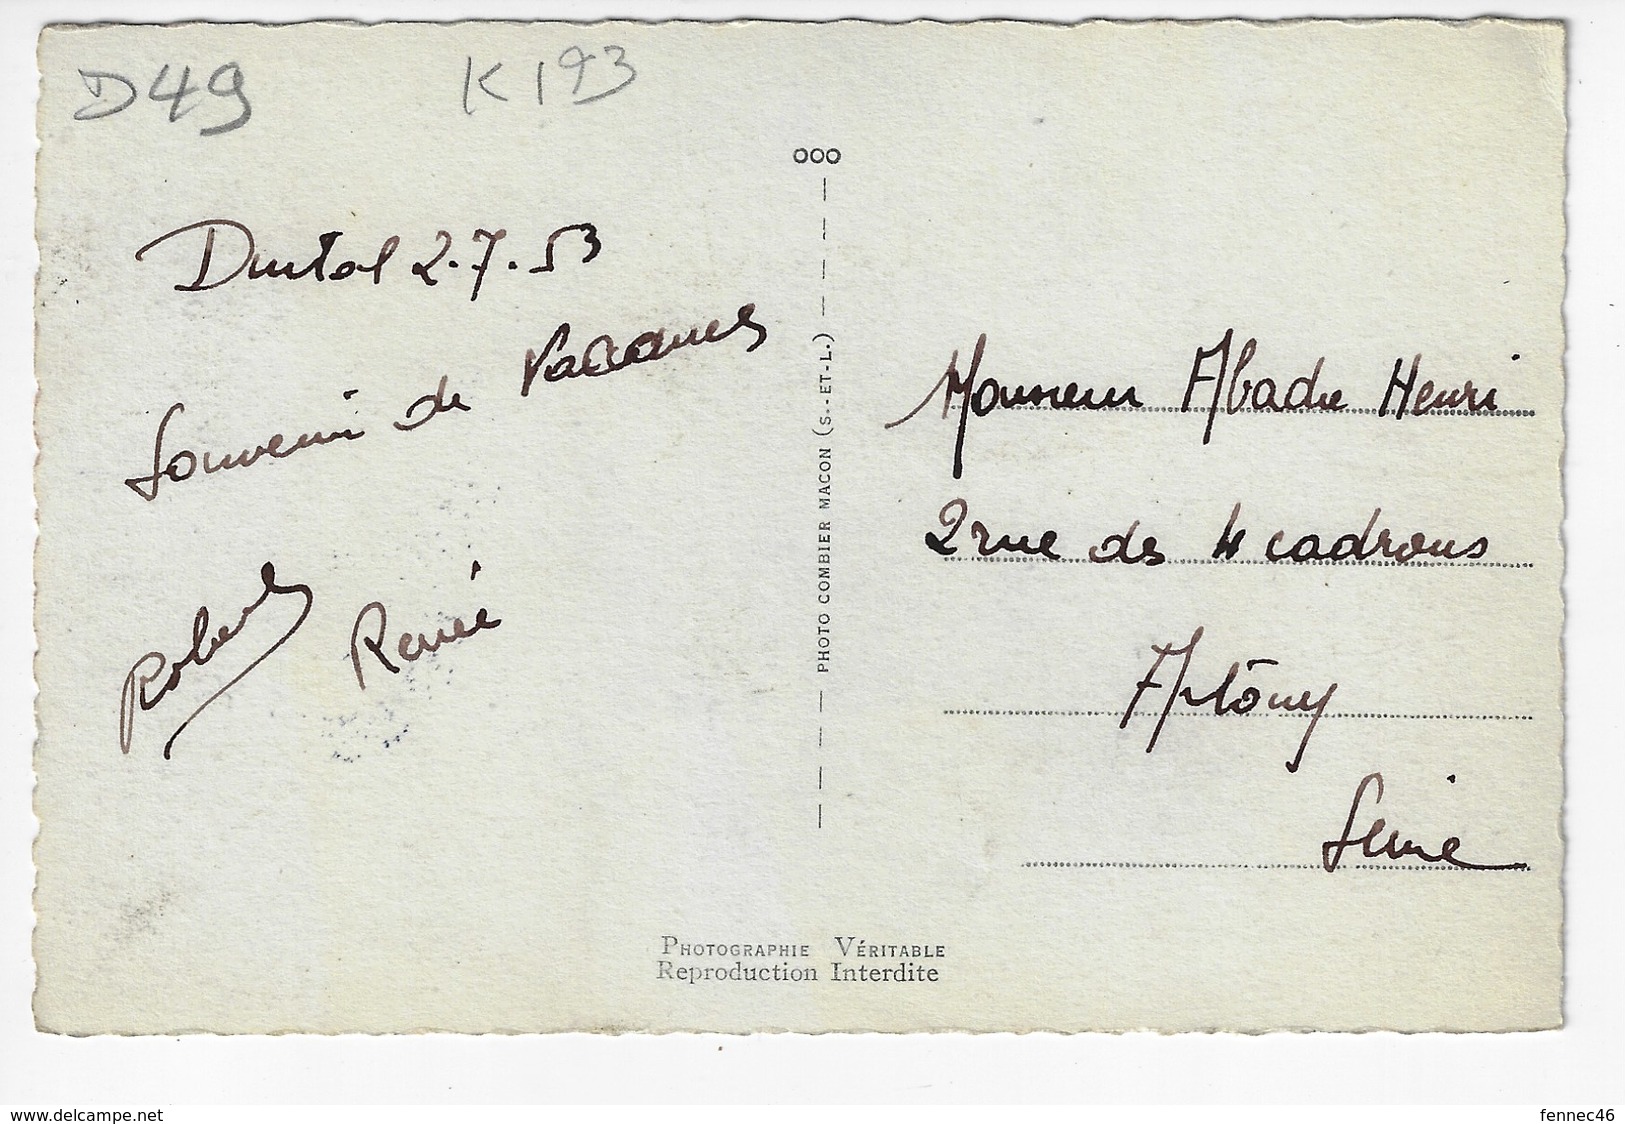 D49
K193
Durtal 2.7.53
Souvenir de Vacances
Robert
Renée
OOO
PHOTO COMBIER MACON (S.-ET-L.)
Monsieur Abadie Henri
2 rue des 4 cadrans
Antony
Seine
PHOTOGRAPHIE VÉRITABLE
Reproduction Interdite
www.delcampe.net
fennec46